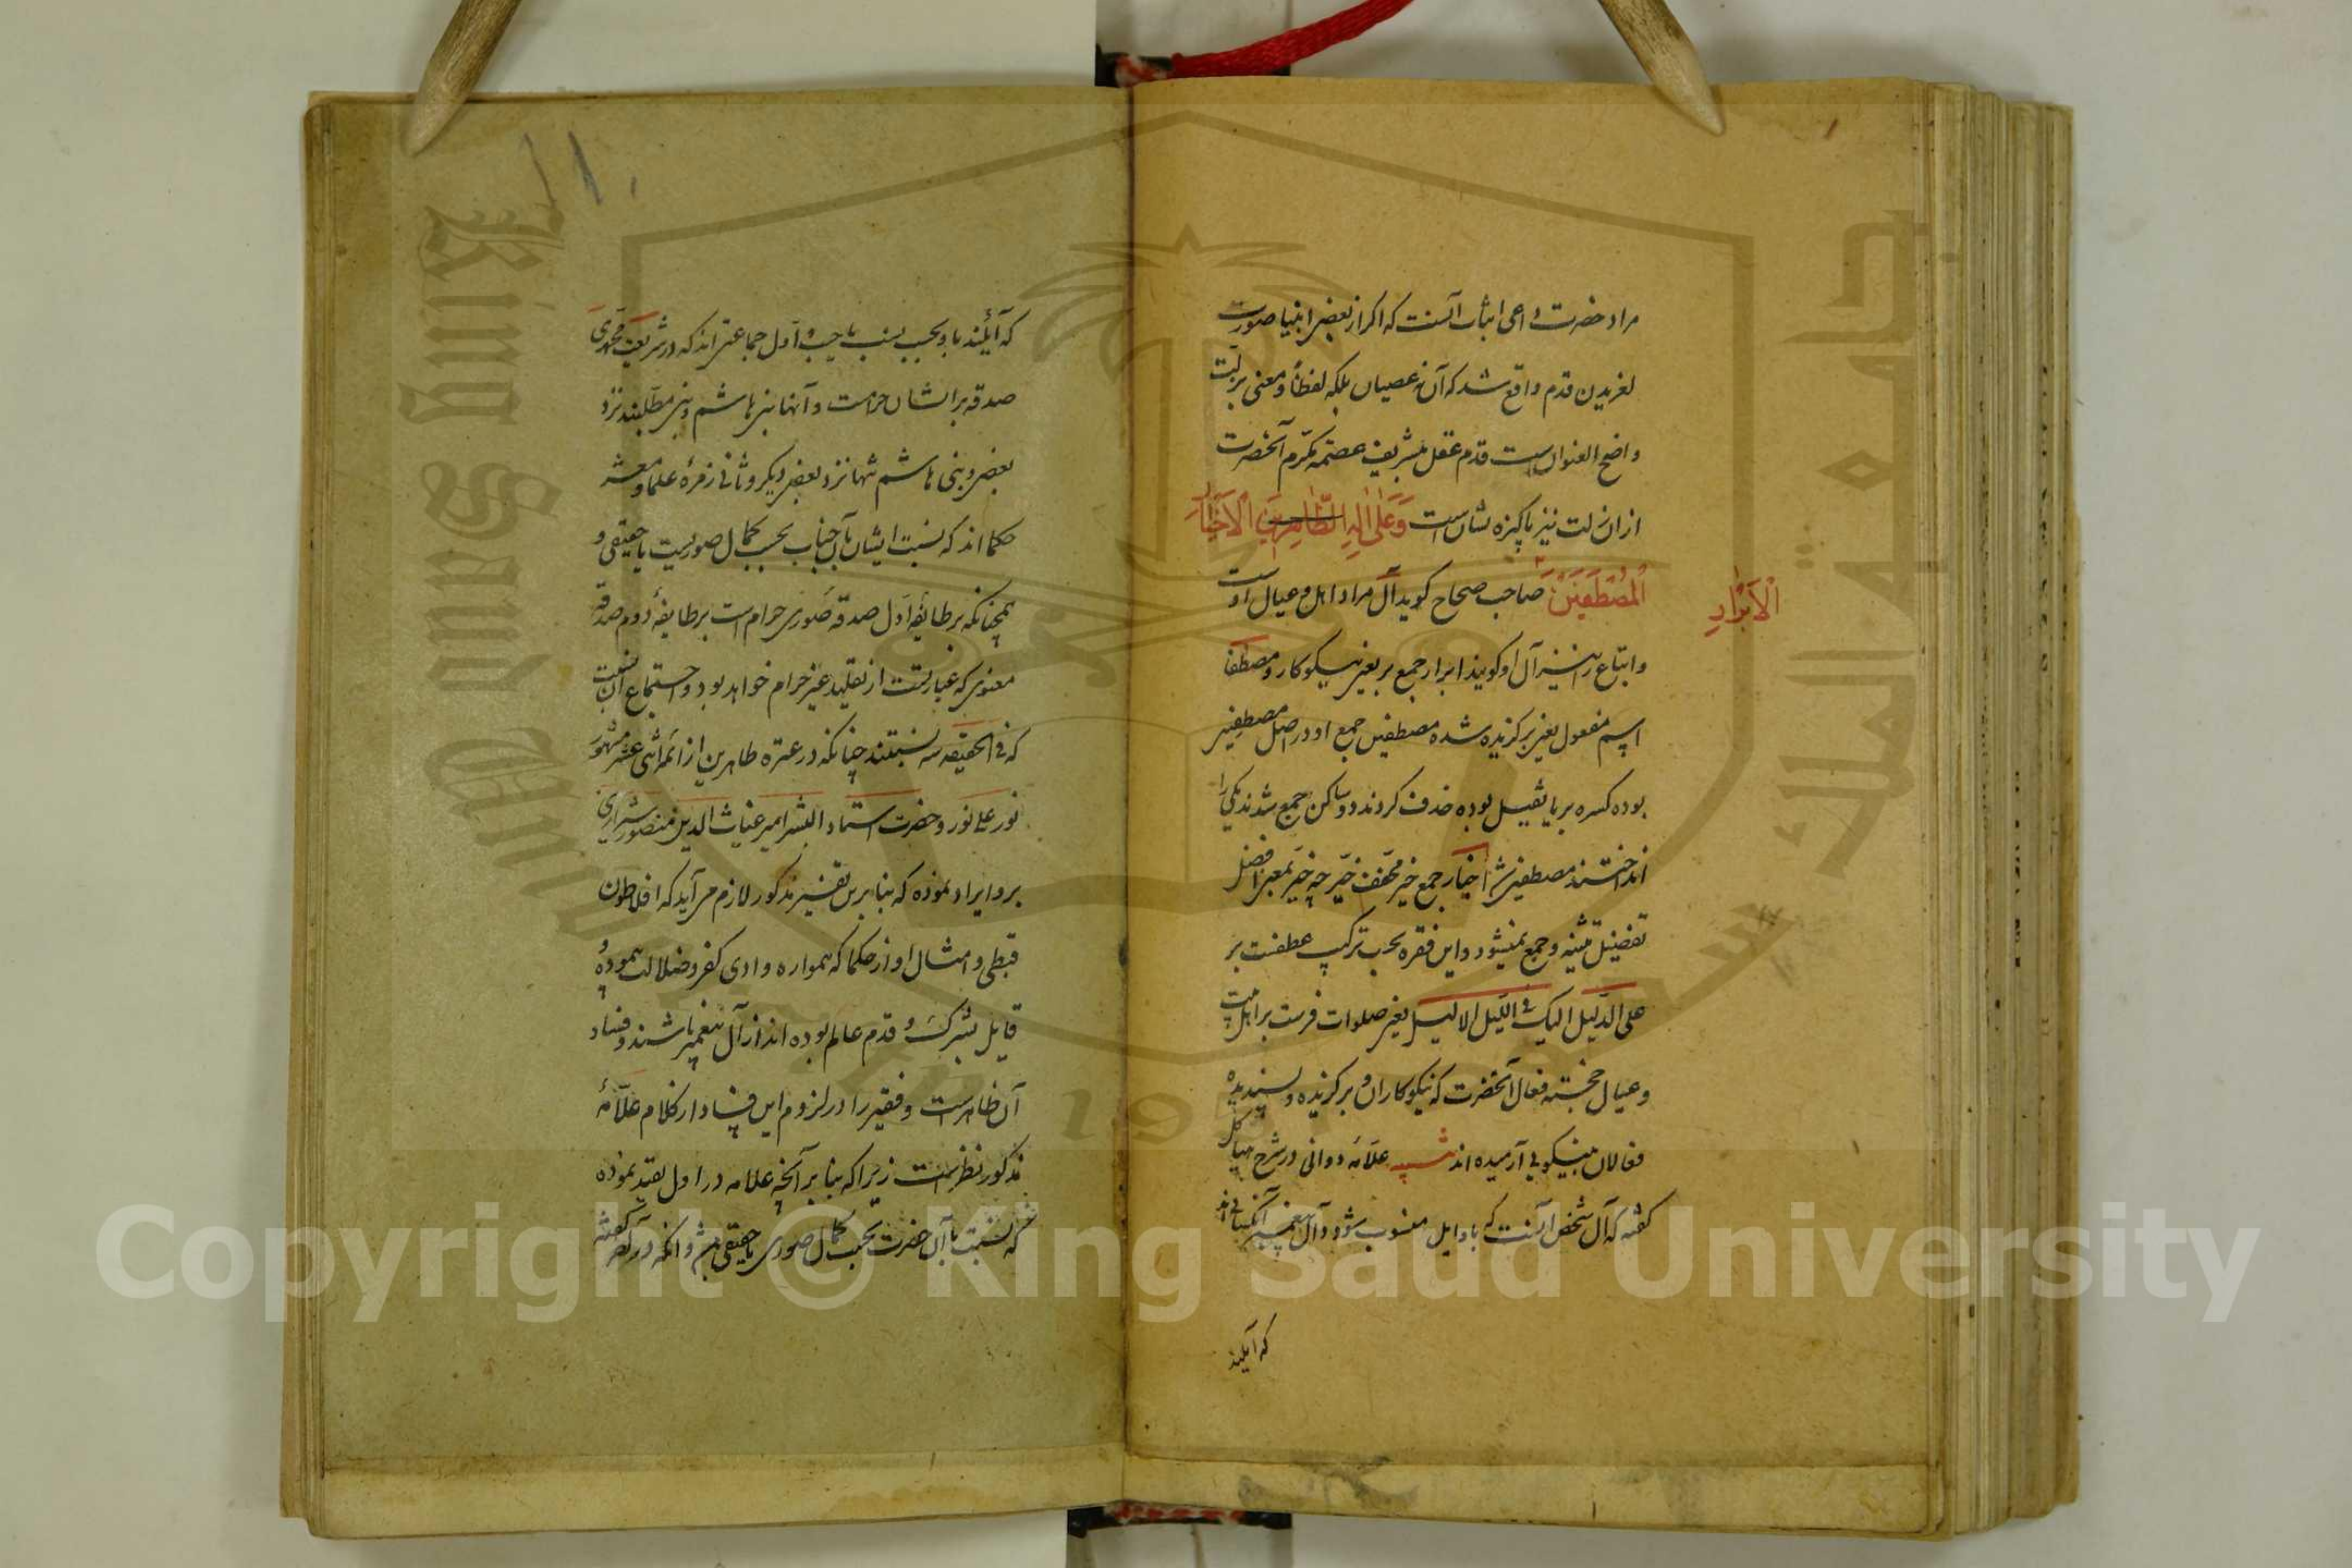 مراد حضرت داعی اینجا آنست که اکر از بعضی انبیا صورت
لغزیدن قدم واقع شد که آن نه عصیان بلکه لفظاً و معنی بر زلت
واضح العنوان است قدم عقل شریف عصمه مکرم آنحضرت
از ان زلت نیز پاکیزه نشان است وَعَلٰی اٰلِهِ الطَّاهِرِینَ الْاَخْیَارِ
الْمُصْطَفَیْنَ صاحب صحاح کوید آل مراد اهل و عیال اوست
الْاَبْرَارِ
واتباع را نیز آل او کویند ابرار جمع بر یعنی نیکوکار و مصطفا
اسم مفعول یعنی برکزیده شده مصطفین جمع او در اصل مصطفیین
بوده کسره بر یا ثقیل بوده حذف کردند دو ساکن جمع شدند یکی را
انداختند مصطفین شد اخیار جمع خیر مخفف خیّر چه خیر بمعنی افضل
تفضیل تثنیه و جمع نمیشود و این فقره بحسب ترکیب عطفست بر
علی الدلیل الیک فی اللیل الالیل یعنی صلوات فرست بر اهل بیت
و عیال خجسته فعال آنحضرت که نیکوکاران و برکزیده و پسندیده
فعالان بنیکویی آرمیده اند علامه دوانی در شرح هیاکل
کفته که آل شخص آنست که باو ایل منسوب شود و آل پیغمبر آنکسانی اند
که آیلند
که آیلند باو بحسب نسب یا حسب اول جماعتی اند که در شریعت محمدی
صدقه بر ایشان حرامست و آنها بنی هاشم و بنی مطلبند نزد
بعضی و بنی هاشم تنها نزد بعضی دیکر و ثانی زمره علما و معشر
حکما اند که نسبت ایشان بآن جناب بحسب کمال صوریست یا حقیقی و
همچنانکه بر طایفهٔ اول صدقه صوری حرام است بر طایفهٔ دوم صدقه
معنوی که عبارتست از تقلید غیر حرام خواهد بود و استجماع آن نسبت
که فی الحقیقه سه نسبتند چنانکه در عتره طاهرین از ائمه اثنی عشر مشهور
نور علی نور و حضرت استاد البشر امیر غیاث الدین منصور شیرازی
برو ایراد نموده که بنا برین تفسیر مذکور لازم می آید که افلاطون
قبطی و امثال او از حکما که همواره وادی کفر و ضلالت پیموده
قایل بشرک و قدم عالم بوده اند از آل پیغمبر باشند و فساد
آن ظاهرست و فقیر را در لزوم این فساد از کلام علامهٔ
مذکور نظر است زیرا که بنا بر آنچه علامه در اول تقیید نموده
که نسبت با آن حضرت بحسب کمال صوری یا حقیقی باشد و آنکه در آخر کفته